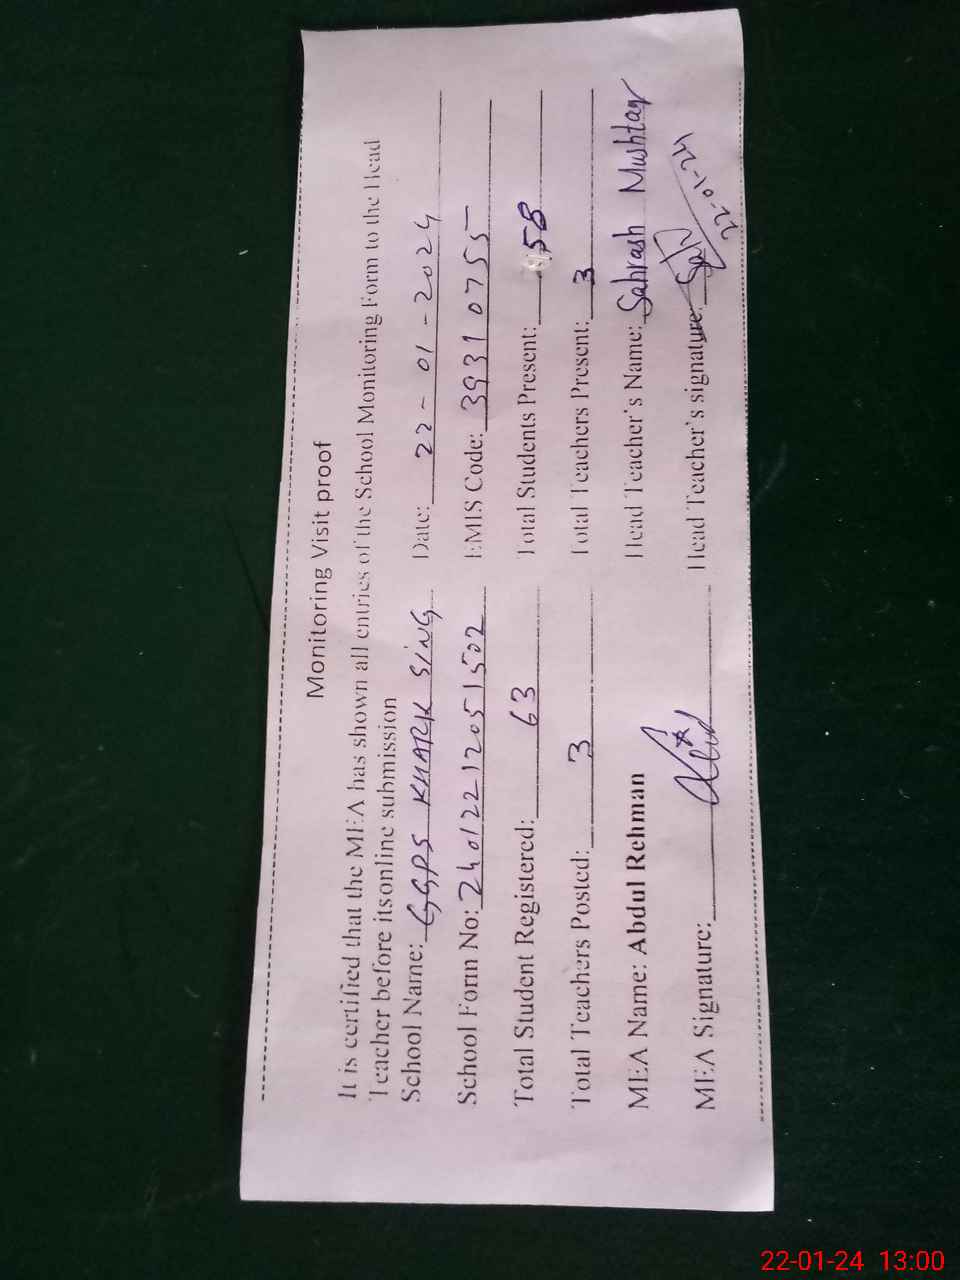 Monitoring Visit proof
It is certified that the MEA has shown all entries of the School Monitoring Form to the Head
Teacher before itsonline submission
School Name: GGPS KHARK SING Date: 22-01-2024
School Form No: 24012212051502 EMIS Code: 39310755
Total Student Registered: 63 Total Students Present: 58
Total Teachers Posted: 3 Total Teachers Present: 3
MEA Name: Abdul Rehman Head Teacher's Name: Sahrash Mushtaq
MEA Signature: Head Teacher's signature:
22-01-24
22-01-24 13:00